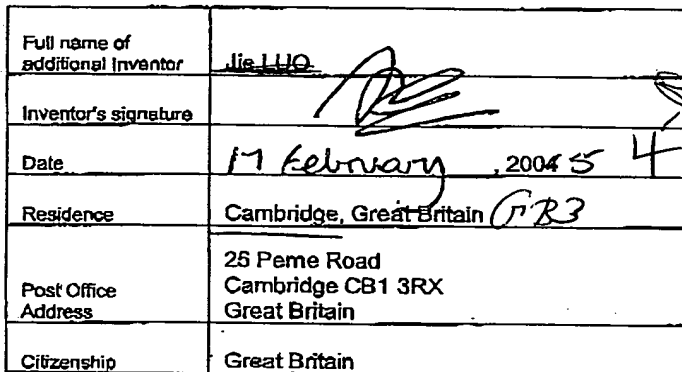 Full name of
additional Inventor
Jie LUO
Inventor's signature
Date
17 February, 2004 5 4
Residence
Cambridge, Great Britain
Post Office
Address
25 Perne Road
Cambridge CB1 3RX
Great Britain
Citizenship
Great Britain